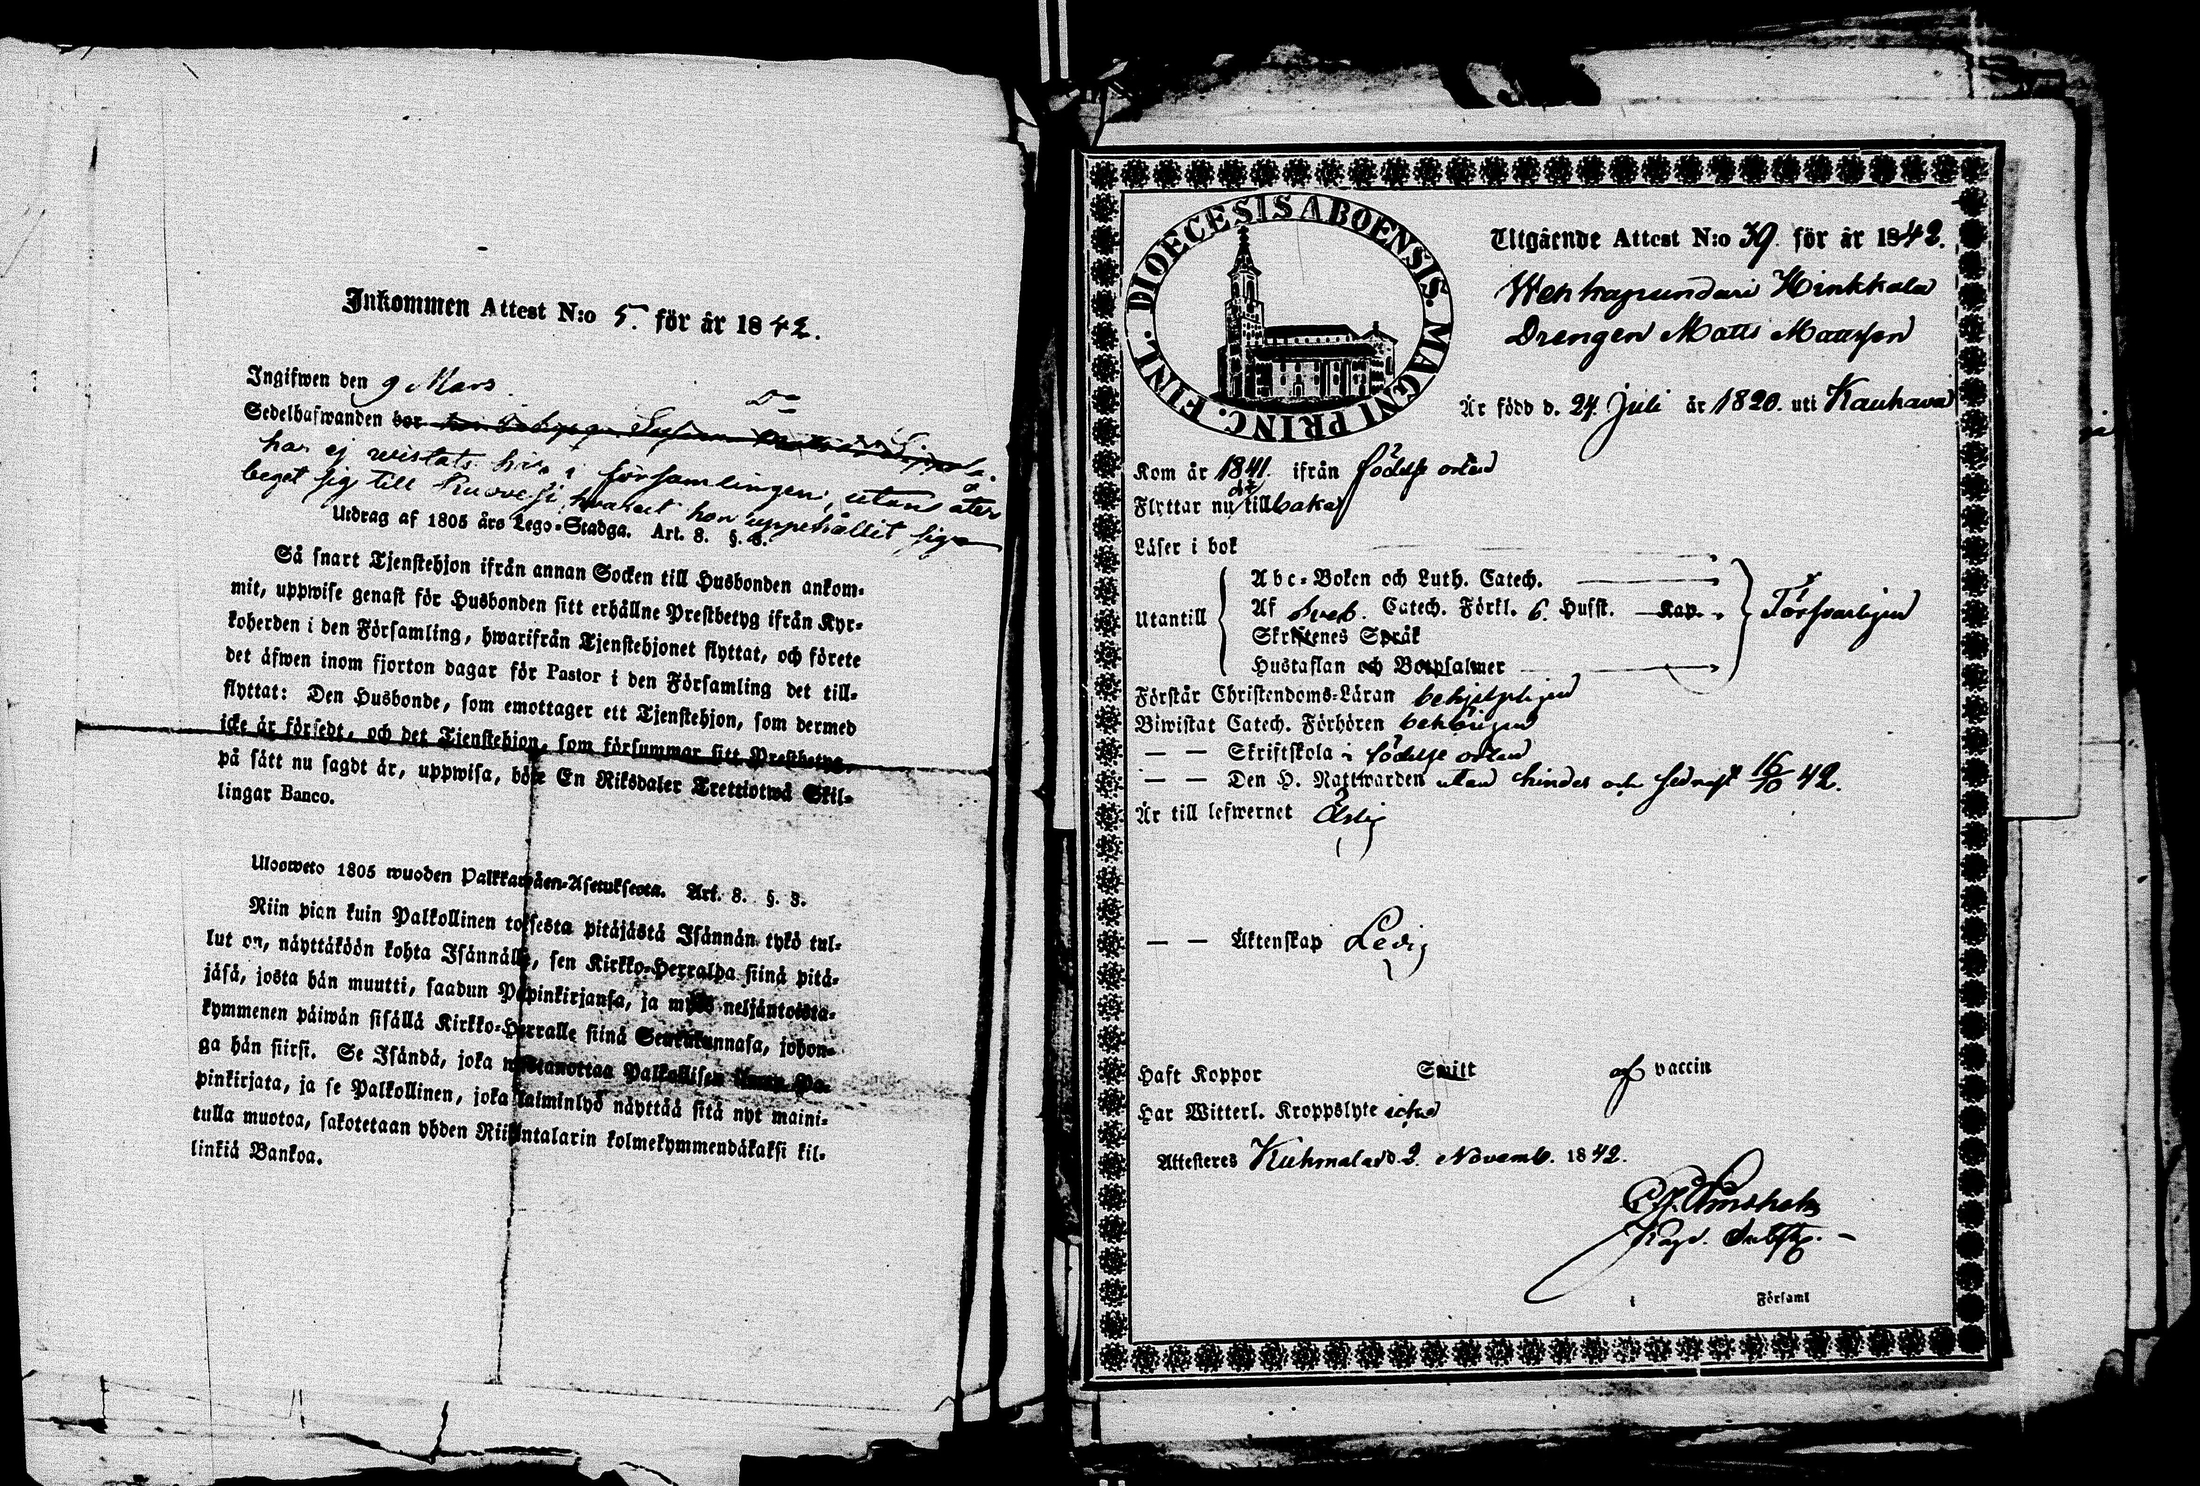 Inkommen Attest N:o 5. för år 1842.
Ingifwen den 9 Mars.
Sedelhafwanden bor
har ej vistats här i församlingen, utan åter
beget sig till Ruovesi, hvarest hon uppehållit sig
Utdrag af 1805 års Lego-Stadga. Art. 8. §. 3.
Så snart Tjenstehjon ifrån annan Socken till Husbonden ankom-
mit, uppwise genast för Husbonden sitt erhållne Prestbetyg ifrån Kyr-
koherden i den Församling, hwarifrån Tjenstehjonet flyttat, och förete
det äfwen inom fjorton dagar för Pastor i den Församling det till-
flyttat: Den Husbonde, som emottager ett Tjenstehjon, som dermed
icke är försedt, och det Tjenstehjon, som försummar sitt Prestbetyg,
på sätt nu sagdt är, uppwisa, böte En Riksdaler Trettiotwå Skil-
lingar Banco.
Ulosweto 1805 wuoden Palkkawäen-Asetuksesta. Art. 8. §. 3.
Niin pian kuin Palkollinen toisesta pitäjästä Isännän tykö tul-
lut on, näyttäköön kohta Isännälle, sen Kirkko-Herralda siinä pitä-
jäsä, josta hän muutti, saadun Papinkirjansa, ja myös neljäntoista-
kymmenen päiwän sisällä Kirkko-Herralle siinä Seurakunnasa, johon-
ga hän siirsi. Se Isändä, joka wastanottaa Palkollisen ilman Pa-
pinkirjata, ja se Palkollinen, joka laiminlyö näyttää sitä nyt maini-
tulla muotoa, sakotetaan yhden Riikintalarin kolmekymmendäkaksi kil-
linkiä Bankoa.
DIOECESIS ABOENSIS. MAGNI PRINC. FINL.
Utgående Attest N:o 39. för år 1842.
Wehkapundari Hinkkala
Drengen Matts Mattsson
Är född d. 24 Juli år 1820. uti Kauhava
Kom år 1841. ifrån födelse orten
Flyttar nu dit tillbaka
Läser i bok
Utantill
Abc-Boken och Luth. Catech.
Af Sveb. Catech. Förkl. 6. Hufst. Kap.
Skriftenes Språk
Hustaflan och Botpsalmer
Försvarligen
Förstår Christendoms-Läran behjelpligen
Biwistat Catech. Förhören behörigen
— — Skriftskola i födelse orten
— — Den H. Nattwarden utan hinder och sednast 16/10 42.
Är till lefwernet Ärlig
— — Äktenskap Ledig
Haft Koppor Smitt af vaccin
Har Witterl. Kroppslyte icke
Attesteres Kuhmalax d. 2. Novemb. 1842.
i Församl